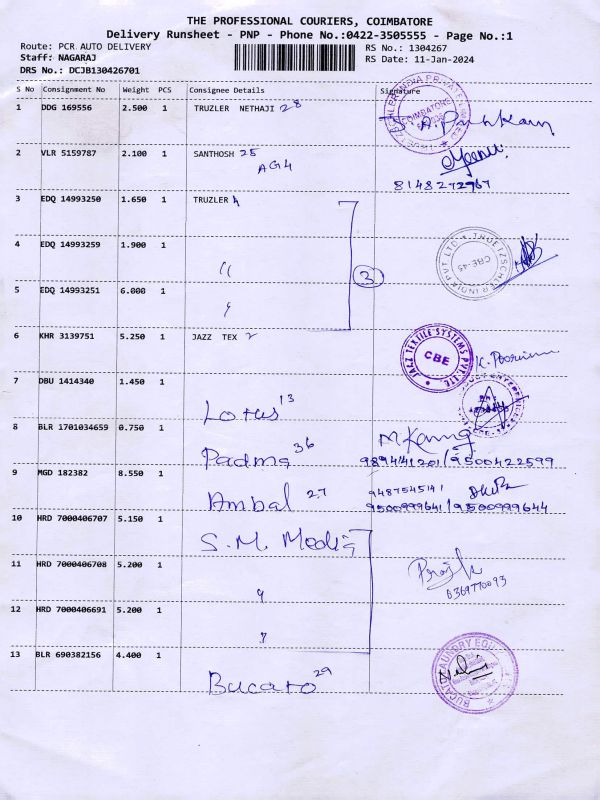 THE PROFESSIONAL COURIERS, COIMBATORE
Delivery Runsheet - PNP - Phone No.:0422-3505555 - Page No.:1
Route: PCR AUTO DELIVERY
RS No.: 1304267
Staff: NAGARAJ
RS Date: 11-Jan-2024
DRS No.: DCJB130426701
S No Consignment No Weight PCS Consignee Details Signature
1 DDG 169556 2.500 1 TRUZLER NETHAJI 28
2 VLR 5159787 2.100 1 SANTHOSH 25
AG4
8148272967
3 EDQ 14993250 1.650 1 TRUZLER
4 EDQ 14993259 1.900 1 "
TRUETZSCHLER INDIA PVT LTD CBE-45
3
5 EDQ 14993251 6.000 1 "
6 KHR 3139751 5.250 1 JAZZ TEX
JAZZ TEXTILE SYSTEMS PVT. LTD CBE
K. Poornima
7 DBU 1414340 1.450 1 Lotus 13
8 BLR 1701034659 0.750 1 Padma 36
9894441201/9500422599
9 MGD 182382 8.550 1 Ambal 27
9487545141
9500999641/9500999644
10 HRD 7000406707 5.150 1 S.M. Media
11 HRD 7000406708 5.200 1 "
12 HRD 7000406691 5.200 1 "
13 BLR 690382156 4.400 1 Bucato 29